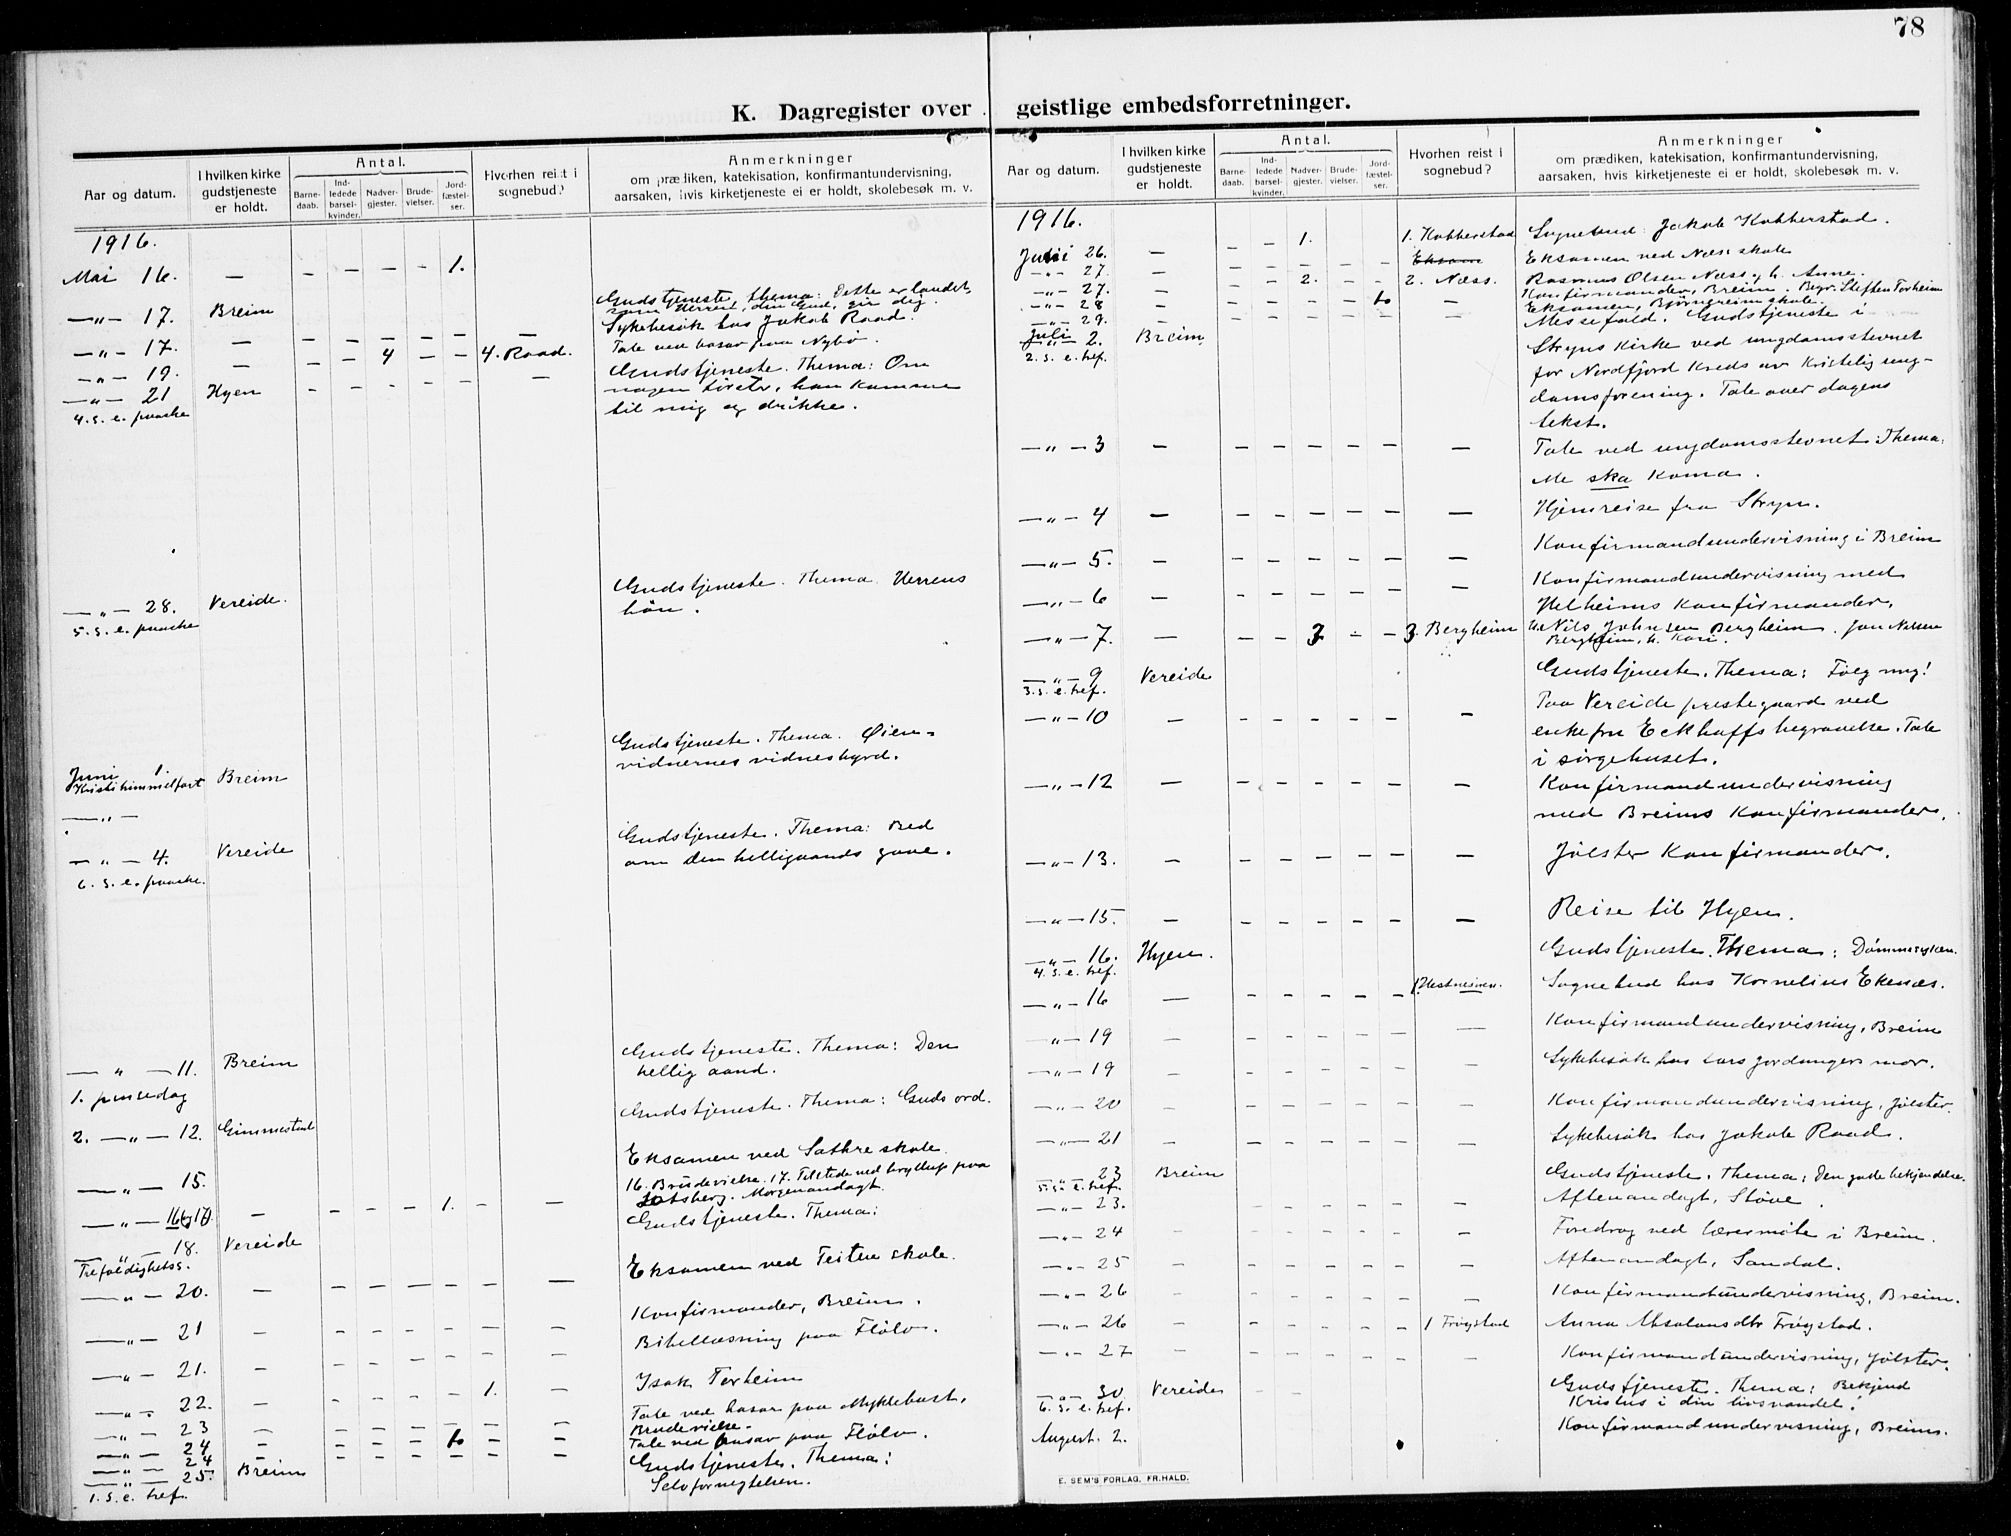 78
K. Dagregister over geistlige embedsforretninger.
Aar og datum.
I hvilken kirke gudstjeneste er holdt.
Antal.
Barne-daab.
Ind-ledede barsel-kvinder.
Nadver-gjester.
Brude-vielser.
Jord-fæstel-ser.
Hvorhen reist i sognebud?
Anmerkninger
om prædiken, katekisation, konfirmantundervisning,
aarsaken, hvis kirketjeneste ei er holdt, skolebesøk m. v.
1916.
Mai 16. — – – – – 1.
—"— 17. Breim Gudstjeneste, thema: Dette er landet,
som Herren, din Gud, gir dig.
Sykebesøk hos Jakob Raad.
—"— 17. — – – – – – — Tale ved basar paa Nybø.
—"— 19. — – – 4 – – 4. Raad.
—"— 21 Hyen – – – – – — Gudstjeneste. Thema: Om
4. s. e. paaske nogen tørster, han komme
til mig og drikke.
—"— 28. Vereide. Gudstjeneste. Thema: Herrens
5. s. e. paaske bøn.
Gudstjeneste. Thema. Øien-
vidnernes vidnesbyrd.
Juni 1. Breim
Kristi himmelfart
—"—
—"— 4. Vereide Gudstjeneste. Thema: Bed
6. s. e. paaske. om den helligaands gave.
—"— 11. Breim Gudstjeneste. Thema: Den
1. pinsedag hellig aand.
2. —"— 12. Gimmestad Gudstjeneste. Thema: Guds ord.
—"— 15. Eksamen ved Sathre skole.
16. Brudevielse. 17. Tilstede ved bryllup paa
Morgenandagt.
—"— 16 og 17 — – – – 1. – —
—"— 18. Vereide Gudstjeneste. Thema:
Trefoldighetss.
—"— 20. — – – – – – — Eksamen ved Teita skole.
—"— 21 – – – – – – – Konfirmander, Breim.
—"— 21. – – – – – – – Bibellæsning paa FløLo.
—"— 22. – – – – – 1. – Isak Torheim
—"— 23 – – – – – – – Tale ved basar paa Myklebust.
—"— 24 – Brudevielse.
—"— 24 – Tale ved basar paa
—"— 25. Breim Gudstjeneste. Thema:
1. s. e. tref. Selvfornegtelsen.
Aar og datum.
I hvilken kirke gudstjeneste er holdt.
Antal.
Barne-daab.
Ind-ledede barsel-kvinder.
Nadver-gjester.
Brude-vielser.
Jord-fæstel-ser.
Hvorhen reist i sognebud?
Anmerkninger
om prædiken, katekisation, konfirmantundervisning,
aarsaken, hvis kirketjeneste ei er holdt, skolebesøk m. v.
1916.
26. — – – 1. 1. Kobberstad Sognebud: Jakob Kobberstad.
—"— 27. — – – – – – Eksam Eksamen ved Næss skole
—"— 27. — – – 2. – – 2. Næss. Rasmus Olsen Næss og h. Anne.
—"— 28 — Konfirmander, Breim. Begr. Steffen Torheim
—"— 29. Eksamen, Bjørngreim skole.
Juli 2. Breim Messefald. Gudstjeneste i
2. s. e. tref. Stryns Kirke ved ungdomsstevnet
for Nordfjord Kreds av Kristelig ung-
domsforening. Tale over dagens
tekst.
—"— 3 – – – – – – — Tale ved ungdomsstevnet. Thema:
Me ska koma.
—"— 4 – – – – – – — Hjemreise fra Stryn.
—"— 5. – – – – – – — Konfirmandundervisning i Breim
—"— 6 – – – – – – – Konfirmandundervisning med
Helheims konfirmander.
—"— 7. — – – 3 – – 3. Bergheim Nils Johnsen Bergheim. Jon Nilsen
Bergheim, h. Kari.
—"— 9 Vereide Gudstjeneste. Thema: Følg mig!
3. s. e. tref.
—"— 10 – – – – – – – Paa Vereide prestegaard ved
enkefru Eckhoffs begravelse. Tale
i sørgehuset.
—"— 12 – – – – – – – Konfirmandundervisning
med Breims konfirmander.
—"— 13. – – – – – – – Jølster konfirmander.
—"— 15. – – – – – – – Reise til Hyen.
—"— 16. Hyen. Gudstjeneste. Thema: Dømmesyken.
4. s. e. tref.
—"— 16 — – – – – – 1 Hestnesøren. Sognebud hos Kornelius Ekenæs.
—"— 19 – – – – – – — Konfirmandundervisning, Breim
—"— 19 – – – – – – – Sykebesøk hos Lars Jordangers mor.
—"— 20 – – – – – – – Konfirmandundervisning, Jølster.
—"— 21 – – – – – – – Sykebesøk hos Jakob Raad.
—"— 23 Breim Gudstjeneste. Thema: Den gode bekjendelse.
5. s. e. tref.
—"— 23. – – – – – – Aftenandagt, Støve.
—"— 24 – – – – – – – Foredrag ved lærermøte i Breim.
—"— 25 – – – – – – – Aftenandagt, Sandal.
—"— 26 – – – – – – – Konfirmandundervisning, Breim.
—"— 26 – – – – – – 1 Frøystad Anna Absalonsdtr Frøystad.
—"— 27 – – Konfirmandundervisning, Jølster.
—"— 30 Vereide – – Gudstjeneste. Thema: Bekjend
6. s. e. tref. Kristus i din livsvandel!
August. 2. Konfirmandundervisning, Breims.
E. SEM'S FORLAG. FR.HALD.